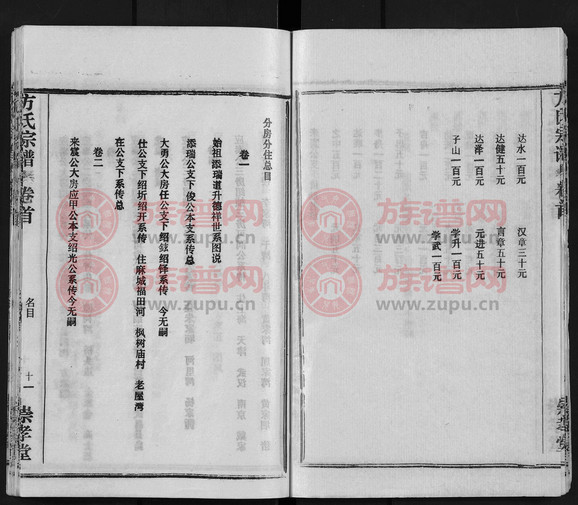 方氏宗谱
卷首
达水一百元 汉章三十元
达泽一百元 学升一百元
达健五十元 言章五十元
子山一百元 元进五十元
学武一百元
崇孝堂
分房分住总目
卷一
始祖添瑞道升德祥世系图说
添瑞公支下俊公本支系传总
大勇公大房任公支下绍兹绍铎系传 今无嗣
仕公支下绍圻绍开系传 住麻城福田河 枫树庙村 老屋湾
在公支下系传总
卷二
来宸公大房应甲公本支绍光公系传今无嗣
方氏宗谱
卷首
名目
十一
崇孝堂
族谱网
www.zupu.cn
族谱网
www.zupu.cn
族谱网
www.zupu.cn
族谱网
www.zupu.cn